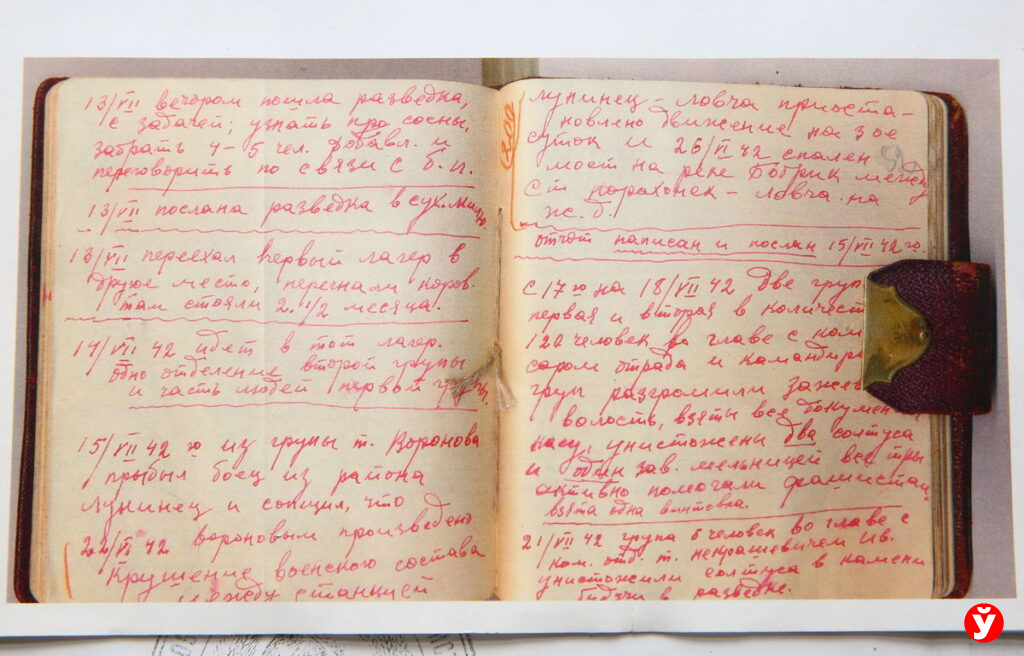 13/VII вечером пошла разведка,
с задачей; узнать про сосны,
забрать 4-5 чел. добавл. и
переговорить по связи с б.п.
13/VII послана разведка в сук.
13/VII переехал первый лагер в
другое место, перегнали коров.
там стояли 2.1/2 месяца.
14/VII 42 идет в тот лагер.
одно отделение второй групы
и часть людей первой групы.
15/VII 42 го из групы т. Воронова
прибыл боец из района
Лунинец и сопщил, что
22/VI 42 Вороновым произведено
Крушение военского состава
между станцией
Лунинец - Ловча приоста-
новлено движение на 3 ое
суток и 26/VI 42 спален
мост на реке Бобрик между
ст. порахонск - Ловча. на
ж. б.!
отчот написан и послан 15/VII 42 го.
с 17 го на 18/VII 42 две груп
первая и вторая в количест
120 человек во главе с ком
саром отрада и командир
груп разгромили
волость, взяты вся документ
касу, унистожены два солтуса
и один зав. мельницей все тры
активно помогали фашистам
взята одна винтовка.
21/VII 42 група 6 человек во главе с
ком. отд. т. некрашевичем Ив.
унистожили солтуса в камени
бидучи в разведке.
ў